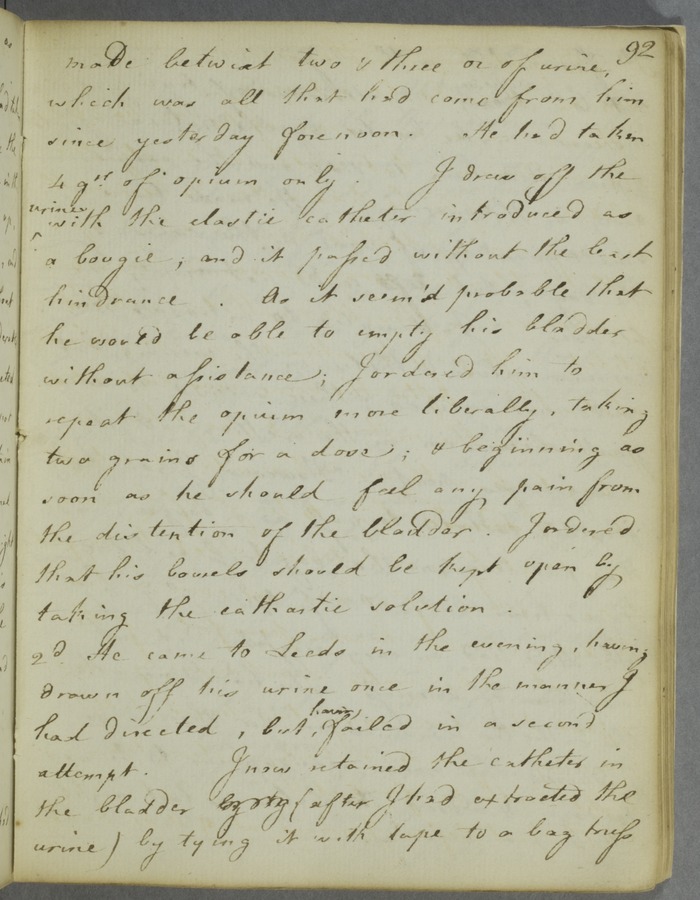 92
made betwixt two & three oz of urine,
which was all that had come from him
since yesterday forenoon. He had taken
4 grs of opium only. I drew off the
urine
with the elastic catheter introduced as
a bougie; and it passed without the least
hindrance. As it seem'd probable that
he would be able to empty his bladder
without assistance; I ordered him to
repeat the opium more liberally, taking
two grains for a dose; & beginning as
soon as he should feel any pain from
the distention of the bladder. I ordered
that his bowels should be kept open by
taking the cathartic solution.
2d He came to Leeds in the evening, having
drawn off his urine once in the manner I
having
had directed, but failed in a second
attempt. I now retained the catheter in
the bladder (after I had extracted the
urine) by tying it with tape to a bag truss